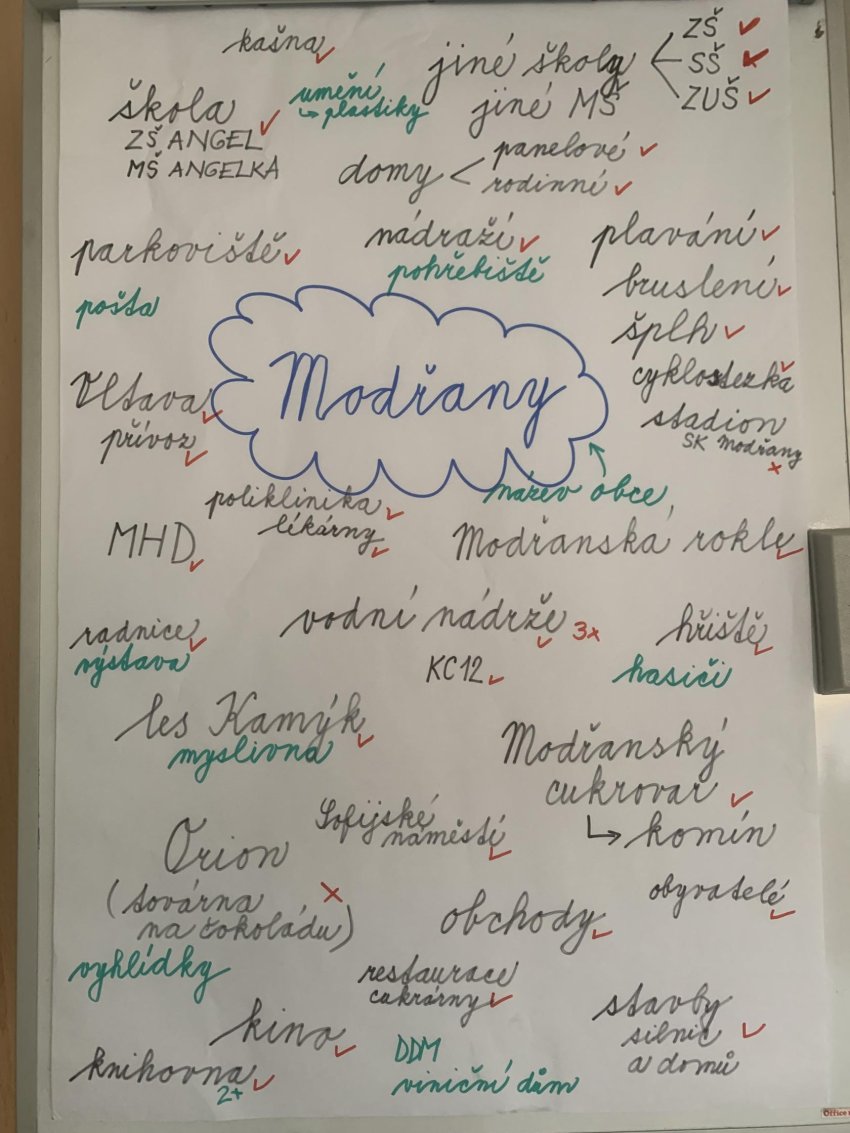 kašna
jiné školy
ZŠ ✓
SŠ ✓
ZUŠ ✓
umění
↳ plastiky
jiné MŠ
škola
ZŠ ANGEL
MŠ ANGELKA
domy
panelové
rodinní
parkoviště
nádraží
pohřebiště
plavání
bruslení
šplh
pošta
Modřany
cyklostezka
stadion
SK Modřany
Vltava
přívoz
název obce
poliklinika
lékárny
MHD
Modřanská rokle
vodní nádrže 3x
radnice
výstava
hřiště
hasiči
KC12
les Kamýk
myslivna
Modřanský
cukrovar
↳ komín
Sofijské
náměstí
Orion
(továrna
na čokoládu)
obyvatelé
obchody
vyhlídky
restaurace
cukrárny
stavby
silnic
a domů
kino
knihovna
2+
DDM
viniční dům
Office